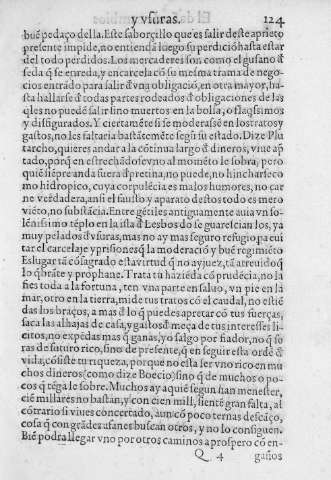 y vſuras. 124
buē pedaço della. Eſte ſaborçillo que es ſalir deſte aprieto
preſente impide, no entienda luego ſu perdiciō haſta eſtar
del todo perdidos. Los mercaderes ſon como el guſano đ
ſeda q̄ ſe enreda, y encarcela cō ſu meſma trama de nego-
cios entrādo para ſalir đ vna obligaciō, en otra mayor, haſ-
ta hallarſe đ todas partes rodeados đ obligaciones de las
q̄les no puedē ſalir ſino muertos en la bolſa, o flaq̄ſimos
y disfigurados. Y ciertamēte ſi ſe moderaſsē en los tratos y
gaſtos, no les faltaria baſtātemēte ſegū ſu eſtado. Dize Plu
tarcho, quieres andar a la cōtinua largo đ dineros, viue ap̄
tado, porq̄ en eſtrechādoſe vno al momēto le ſobra, pero
quiē ſiēpre anda fuera đ pretina, no puede, no hincharſe co
mo hidropico, cuya corpulēcia es malos humores, no car
ne verdadera, anſi el fauſto y aparato deſtos todo es mero
viēto, no ſubſtācia. Entre gētiles antiguamente auia vn ſo-
lēniſsimo tēplo en la iſla đ Lesbos do ſe guarecian los, ya
muy pelados đ vſuras, mas no ay mas ſeguro refugio pa cui
tar el carcelaje y priſiones q̄ la moderaciō y buē regimiēto
Es lugar tā cōſagrado eſta virtud q̄ no ay juez, tā atreuido q̄
lo q̄brāte y prophane. Trata tu haziēda cō prudēcia, no la
fies toda a la fortuna, ten vna parte en ſaluo, vn pie en la
mar, otro en la tierra, mide tus tratos cō el caudal, no eſtiē
das los braços, a mas đ lo q̄ puedes apretar cō tus fuerças,
ſaca las alhajas de caſa, y gaſtos đ meça de tus intereſſes li-
citos, no expēdas mas q̄ ganas, yo ſalgo por fiador, no q̄ ſo
ras de futuro rico, ſino de preſente, q̄ en ſeguir eſta ordē đ
vida, cōſiſte tu riqueza, porque no eſta ſer vno rico en mu
chos dineros (como dize Boecio) ſino q̄ de muchos o po-
cos q̄ tēga le ſobre. Muchos ay aquiē ſegun ſtan meneſter,
ciē millares no baſtan, y con cien mill, ſientē gran falta, al
cōtrario ſi viues concertado, aun cō poco ternas deſcāço,
coſa q̄ con grādes afanes buſcan otros, y no lo conſiguen.
Biē podra llegar vno por otros caminos a proſpero cō en-
Q 4 gaños